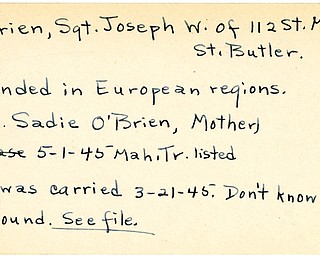 rien, Sgt. Joseph W. of 112 St. M
St. Butler.
nded in European regions.
. Sadie O'Brien, Mother,
ase 5-1-45 Mah. Tr. listed
was carried 3-21-45. Don't know
ound. See file.